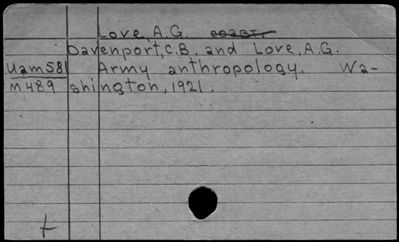 Love, A.G.
Davenport, C.B. and Love, A.G.
Uam58 Army anthropology. Wa-
M489 shington, 1921.